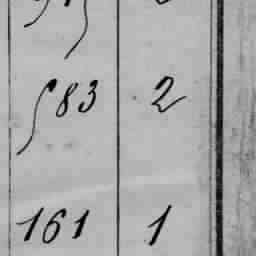 583 2
161 1